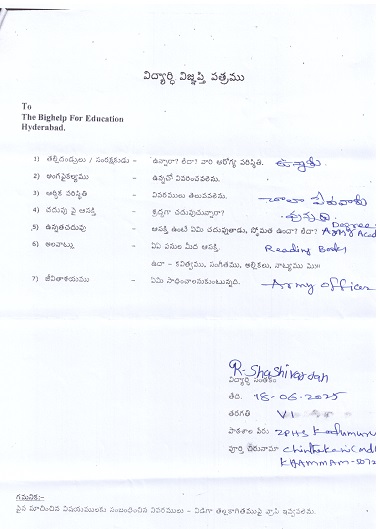 విద్యార్థి విజ్ఞప్తి పత్రము
To
The Bighelp For Education
Hyderabad.
1) తల్లిదండ్రులు / సంరక్షకుడు - ఉన్నారా? లేదా? వారి ఆరోగ్య పరిస్థితి. ఉన్నారు
2) అంగవైకల్యము - ఉన్నచో వివరించవలెను.
3) ఆర్థిక పరిస్థితి - వివరములు తెలుపవలెను. చాలా పేదవారు
4) చదువు పై ఆసక్తి - శ్రద్ధగా చదువుచున్నారా?
5) ఉన్నతచదువు - ఆసక్తి ఉంటే ఏమి చదువుతాడు, స్తోమత ఉందా? లేదా? Degree
6) అలవాట్లు - ఏఏ పనుల మీద ఆసక్తి. Reading Books
ఉదా – కవిత్వము, సంగీతము, అల్లికలు, నాట్యము ము॥
7) జీవితాశయము - ఏమి సాధించాలనుకుంటున్నది. Army officer
R. Shashivardan
విద్యార్థి సంతకం
తేది. 18-06-2025
తరగతి VI
పాఠశాల పేరు ZPHS
పూర్తి చిరునామా
KHAMMAM
గమనిక:-
పైన సూచించిన విషయములకు సంబంధించిన వివరములు – విడిగా తెల్లకాగితముపై వ్రాసి ఇవ్వవలెను.